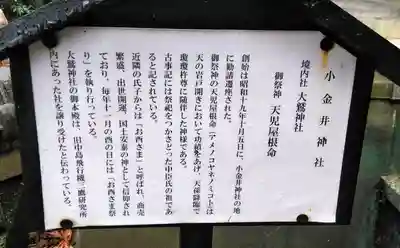 小金井神社
境内社 大鷲神社
御祭神 天児屋根命
創始は昭和十九年十月五日に、小金井神社の地
に勧請遷座された。
御祭神の天児屋根命(アメノコヤネノミコト)は
天の岩戸開きにおいて功績をあげ、天孫降臨で
瓊瓊杵尊に随伴した神様である。
古事記には祭祀をつかさどった中臣氏の祖であ
ると記されている。
近隣の氏子からは「お酉さま」と呼ばれ、商売
繁盛、出世開運、国土安泰の神として信仰され
ており、毎年十一月の酉の日には「お酉さま祭
り」を執り行っている。
大鷲神社の御本殿は、旧中島飛行機三鷹研究所
内にあった社を譲り受けたと伝わっている。